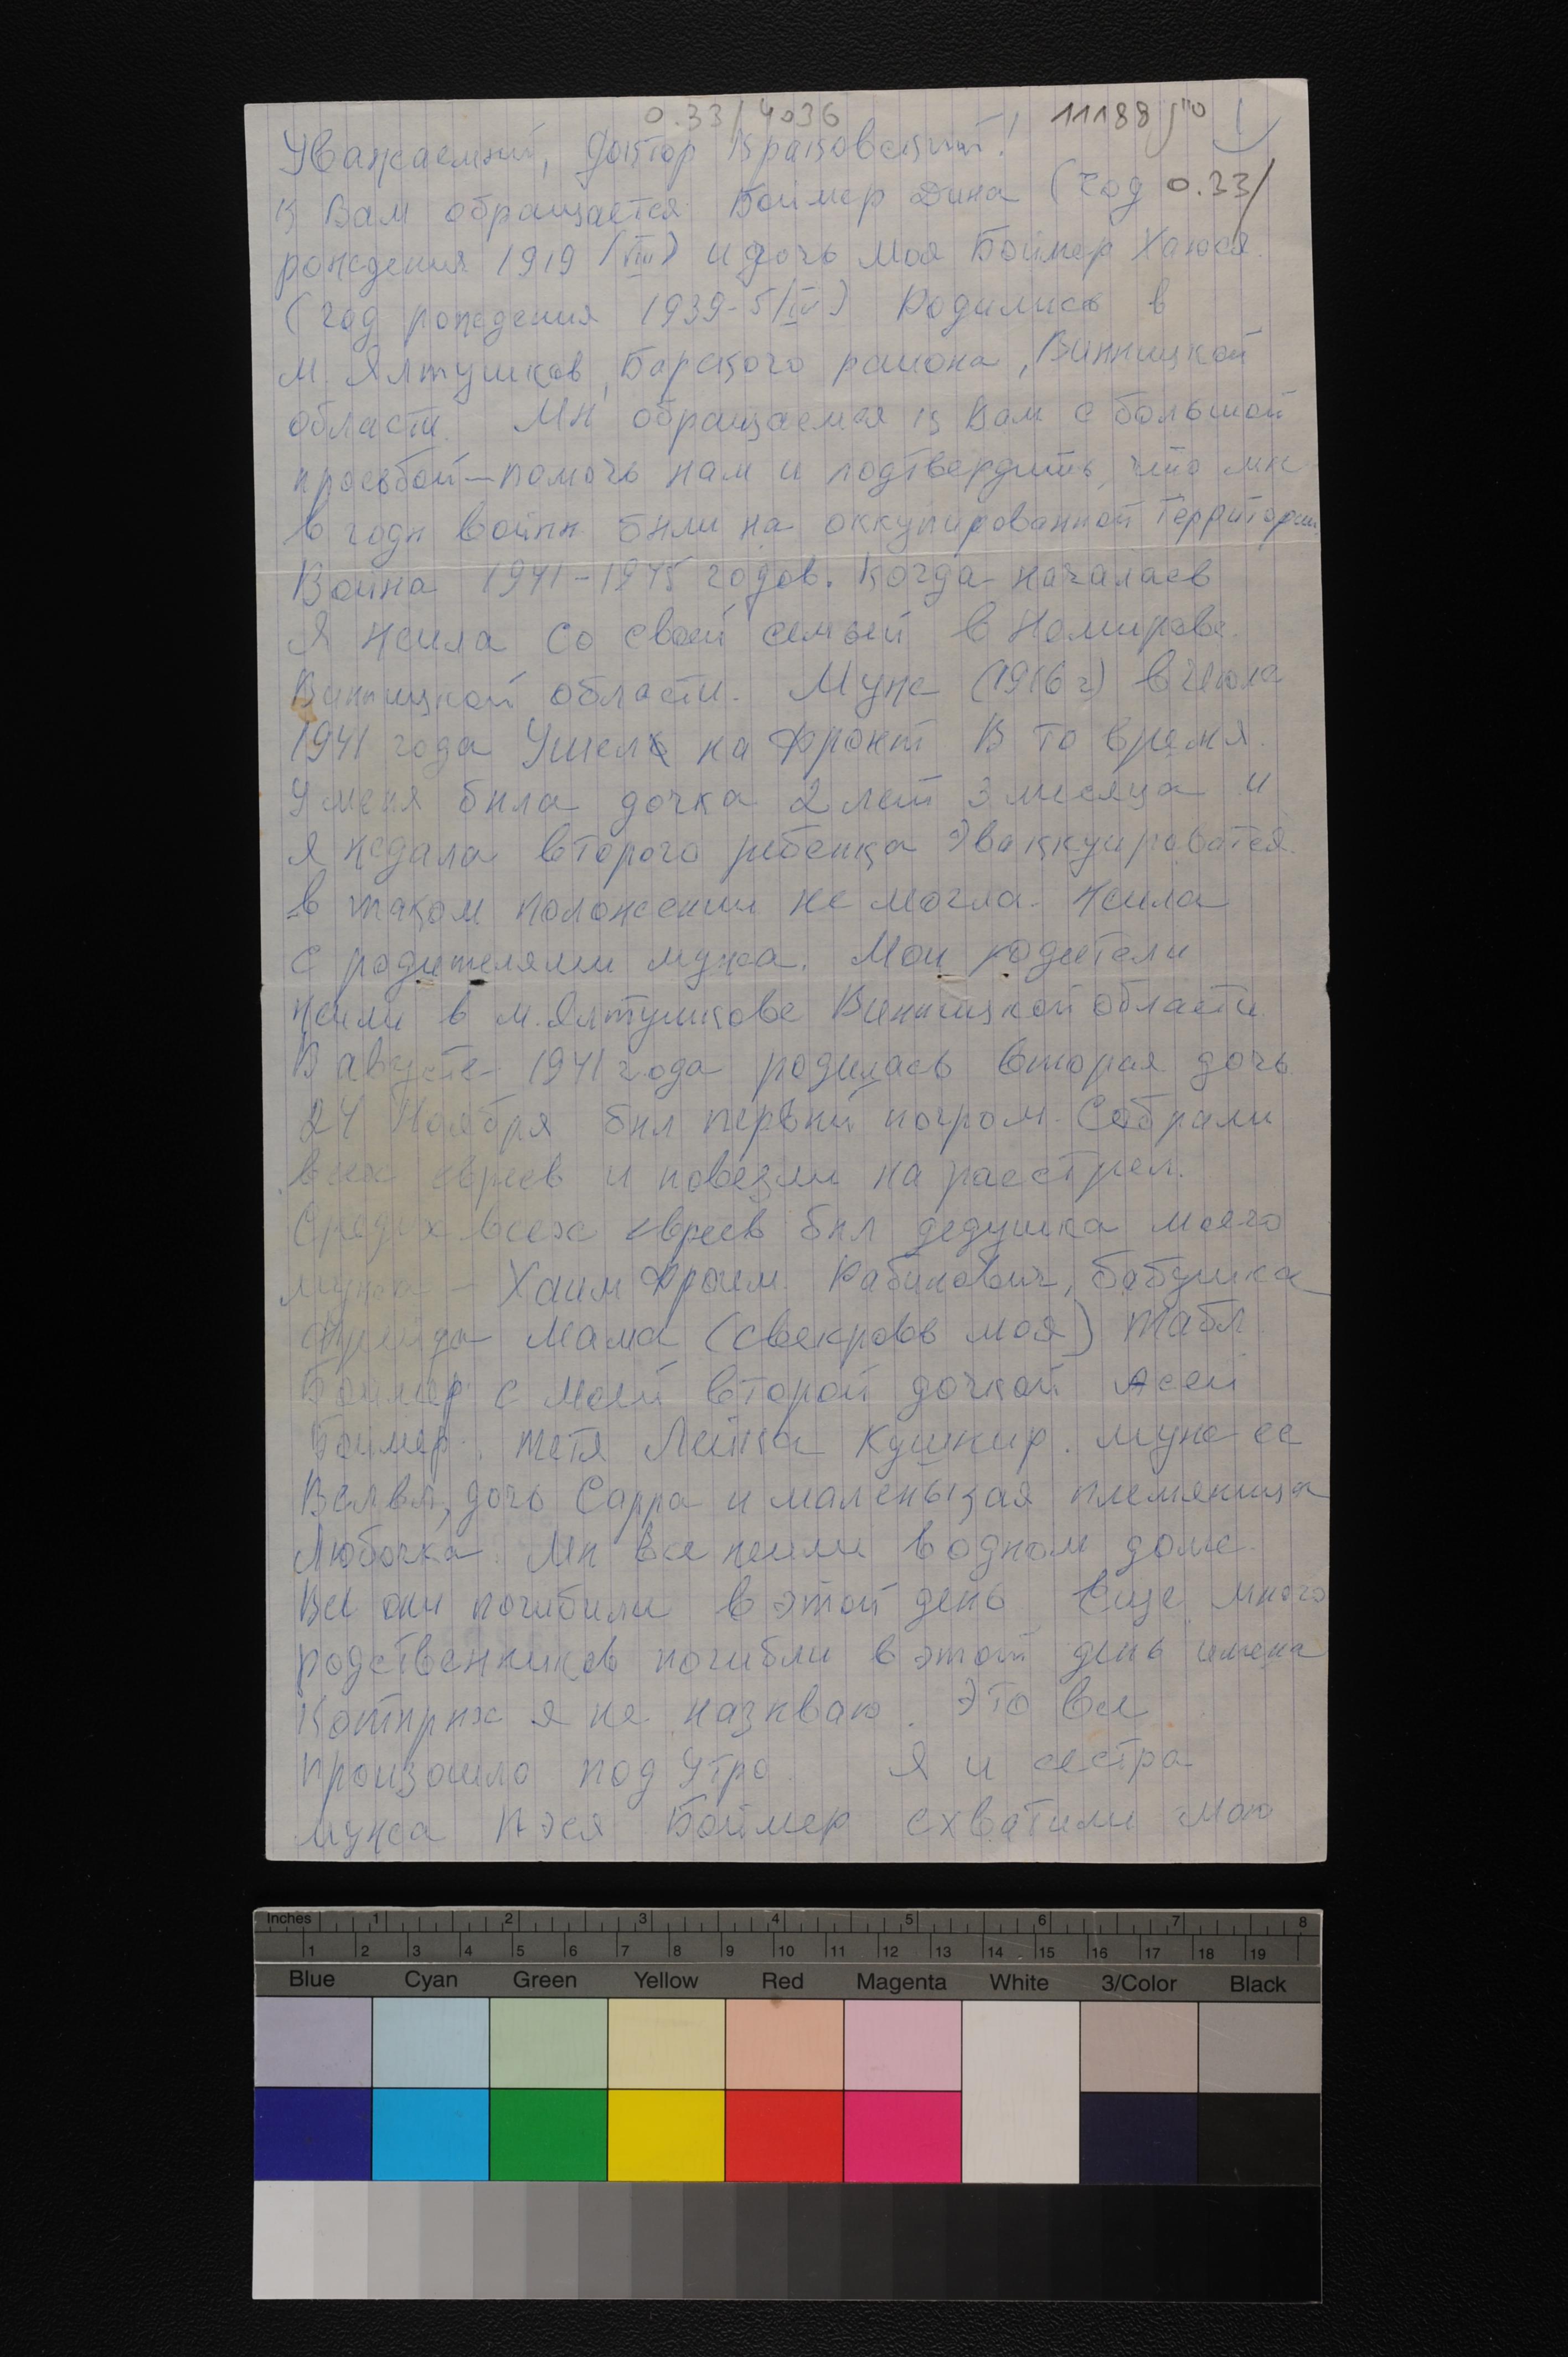 0.33/4036 11188
Уважаемый, доктор Краковский!
К Вам обращается Боймер Дина (год 0.33/
рождения 1919 (VIII) и дочь моя Боймер Хаюся.
(год рождения 1939-5/IV) Родились в
м. Ялтушков, Барского района, Винницкой
области. Мы обращаемся к Вам с большой
просьбой - помочь нам и подтвердить, что мы
в годы войны были на оккупированной территории
Война 1941-1945 годов. Когда началась
Я жила со своей семьей в Немирове.
Винницкой области. Муж (1916 г) в Июле
1941 года Ушел на Фронт В то время.
У меня была дочка 2 лет 3 месяца и
я ждала второго ребенка Эваккуироватся.
в таком положении не могла. Жила
с родителями мужа. Мои родители
жили в м. Ялтушкове Винницкой области
В августе 1941 года родилась вторая дочь
24 Ноября был первый погром. Собрали
всех евреев и повезли на расстрел.
Средих всех евреев был дедушка моего
мужа - Хаим Фроим Рабинович, бабушка
Мама (свекровь моя) Табл
Боймер с моей второй дочкой Асей
Боймер. тетя Лейка Кушнир. муж ее
Велвл, дочь Сарра и маленькая племянница
Любочка. Мы все жили в одном доме.
Все они погибили в этой день Еще много
родственников погибли в этот день имена
Котырых я не называю. Это все
произошло под Утро Я и сестра
мужа Пэся Боймер схватили мою
Inches 1 2 3 4 5 6 7 8
1 2 3 4 5 6 7 8 9 10 11 12 13 14 15 16 17 18 19
Blue Cyan Green Yellow Red Magenta White 3/Color Black